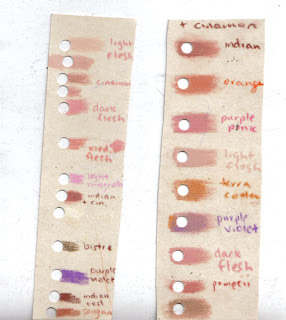 light
flesh
cinnamon
dark
flesh
med.
flesh
light
indian
+ cin.
bistre
purple
violet
indian
red
+ cinnamon
indian
orange
purple
pink
light
flesh
terra
cotta
purple
violet
dark
flesh
pompeii